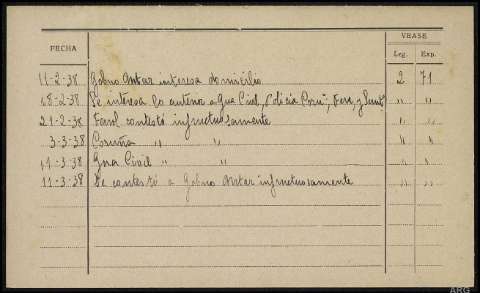 VEASE
FECHA
Leg. Exp.
11-2-38 Gobno Mitar interesa domicilio 2 71
18-2-38 Se interesa lo anterior a Gua Civil, Policia Coruª, Ferrol y " "
21-2-38 Farol contestó infructuosamente " "
3-3-38 Coruña " " " "
11-3-38 Gua Civil " " " "
11-3-38 Se contestó a Gobno Mitar infructuosamente " "
ARG